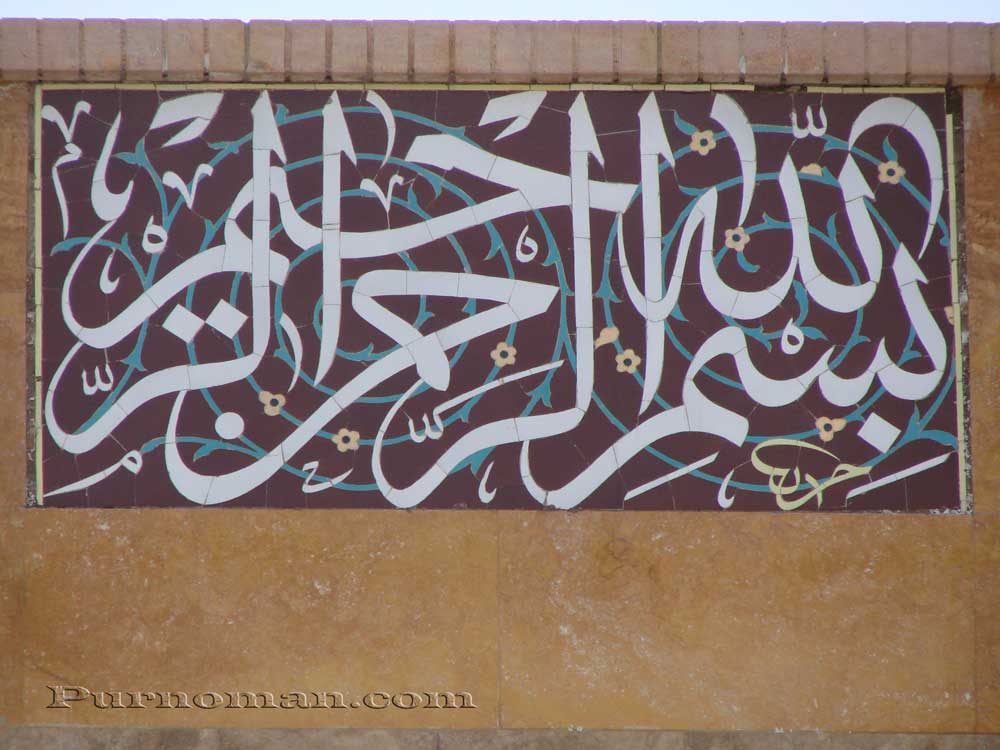 بسم الله الرحمن الرحیم
Purnoman.com